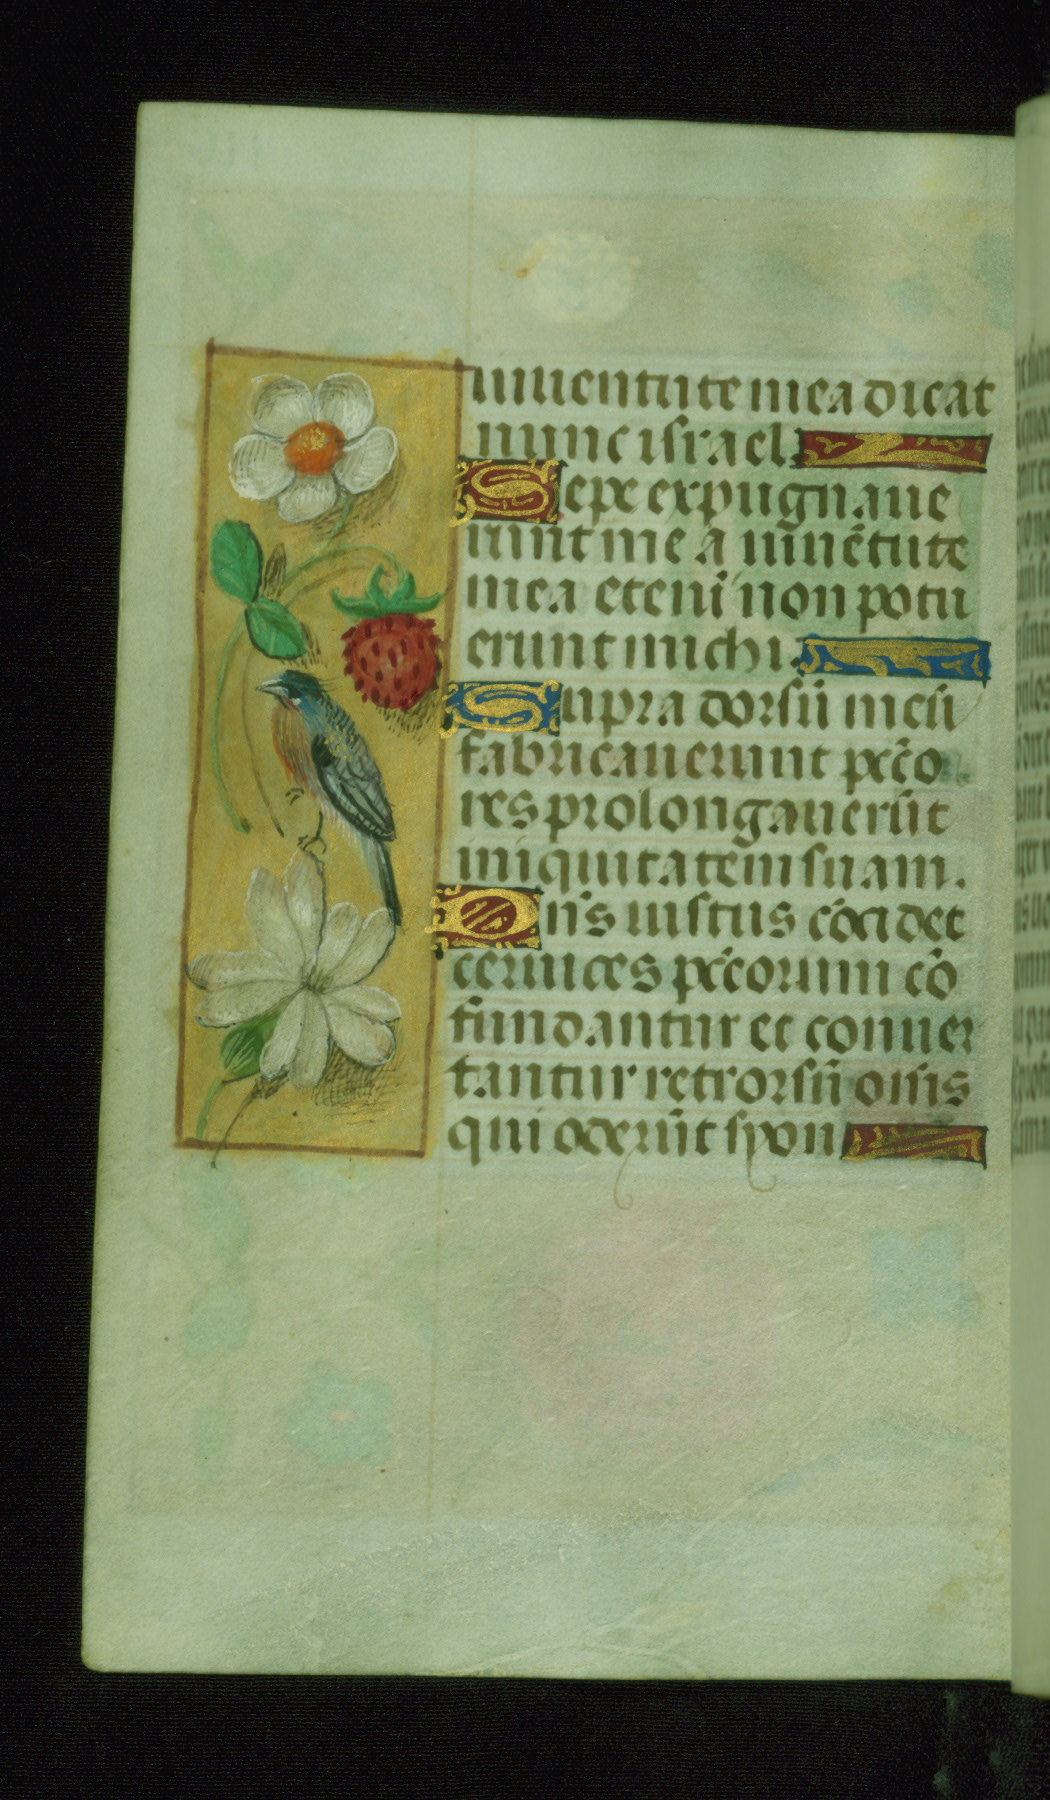 iuuentute mea dicat
nunc israel.
Sepe expugnaue
runt me a iuuētute
mea etenī non potu
erunt michi.
Supra dorsū meū
fabricauerunt pcc̄o
res prolongauerūt
iniquitatem suam.
Dn̄s iustus cōcidet
ceruices pcc̄orum cō
fundantur et conuer
tantur retrorsū om̄s
qui oderūt syon